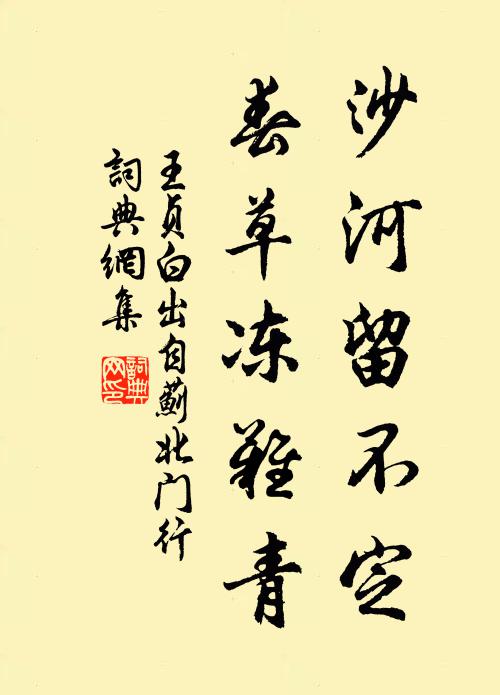 沙河留不定
春草冻難青
王貞白出自薊北门行
詞典網集
詞典
网印